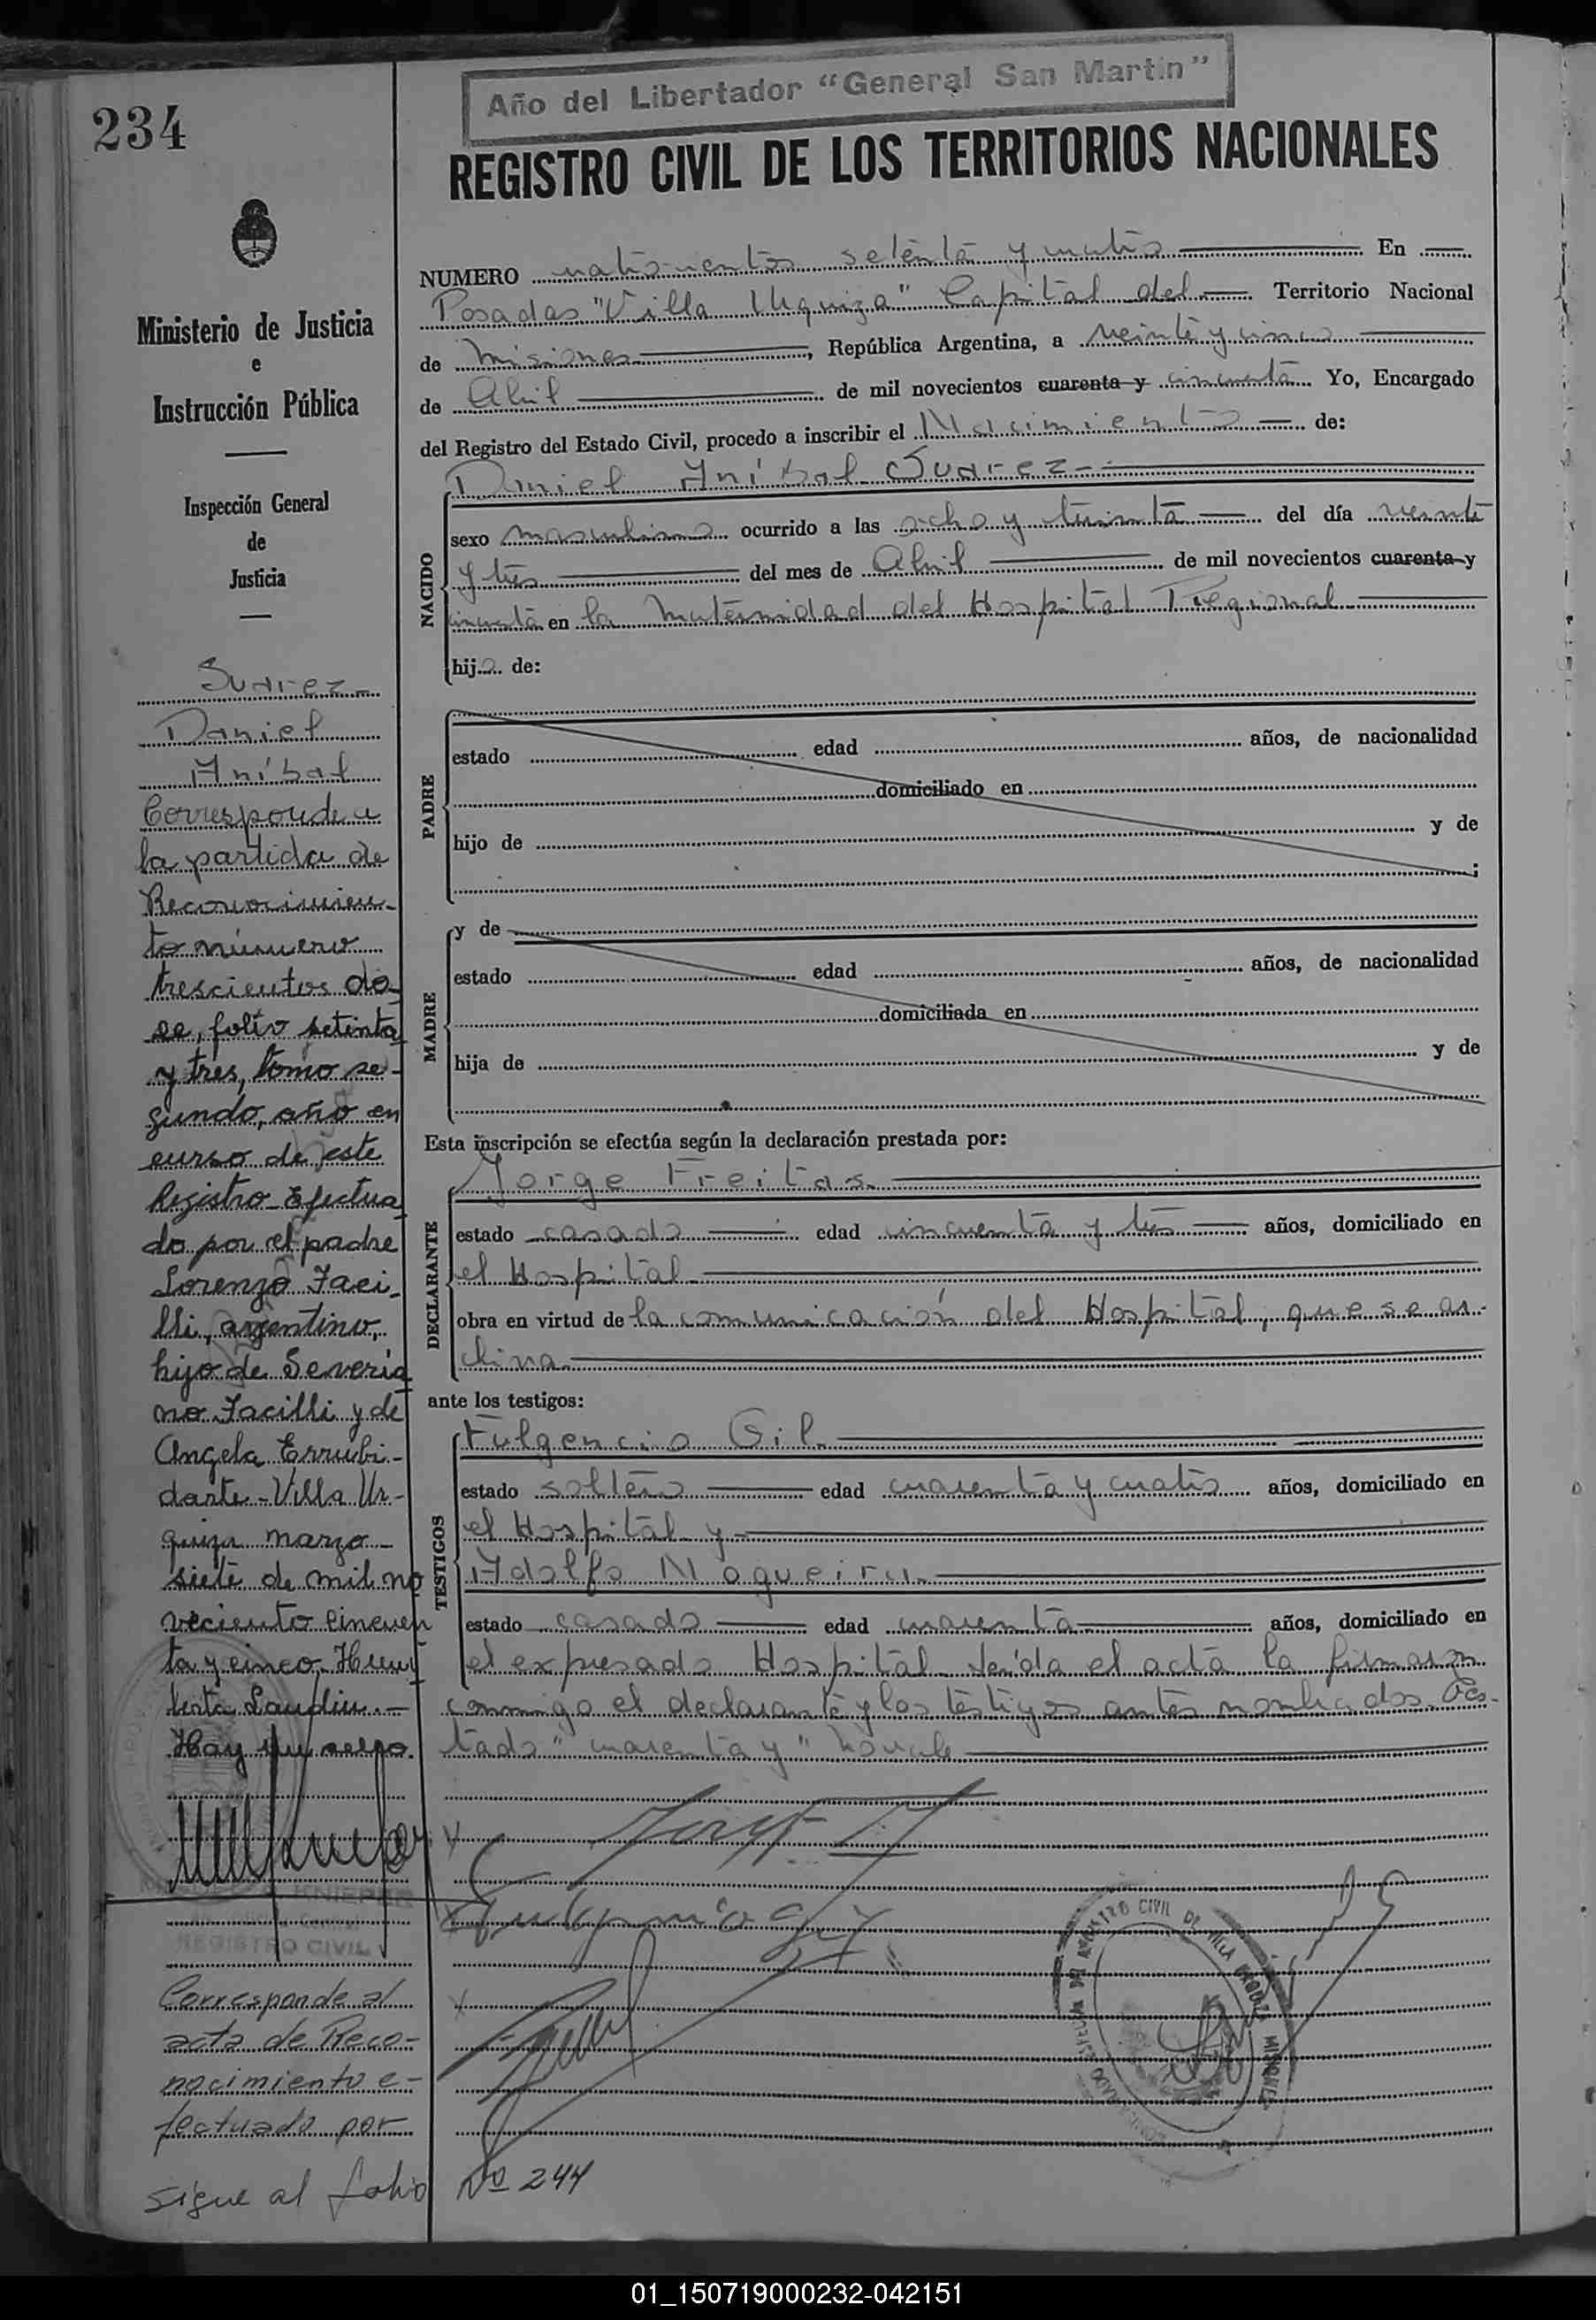 Año del Libertador "General San Martín"
234
REGISTRO CIVIL DE LOS TERRITORIOS NACIONALES
Ministerio de Justicia
e
Instrucción Pública
Inspección General
de
Justicia
Suarez
Daniel
Aníbal
Corresponde a
la partida de
Reconocimien-
to número
trescientos do-
ce, folio setenta
y tres, tomo se-
gundo, año en
curso de este
Registro Efectua
do por el padre
Lorenzo Faci-
lli, argentino,
hijo de Severia
no Facilli y de
Angela Errubi-
darte - Villa Ur-
quiza marzo
siete de mil no
veciento cincuen
ta y cinco.
Hay un sello.
REGISTRO CIVIL
Corresponde al
acta de Reco-
nocimiento e-
fectuado por
sigue al folio Nº 244
NUMERO cuatrocientos setenta y cuatro En
Posadas "Villa Urquiza" Capital del Territorio Nacional
de Misiones, República Argentina, a veinte y cinco
de Abril de mil novecientos cuarenta y cincuenta Yo, Encargado
del Registro del Estado Civil, procedo a inscribir el Nacimiento de:
Daniel Aníbal Suarez
NACIDO
sexo masculino ocurrido a las ocho y treinta del día veinte
y tres del mes de Abril de mil novecientos cuarenta y
cincuenta en la Maternidad del Hospital Regional
hijo de:
PADRE
estado edad años, de nacionalidad
domiciliado en
hijo de y de
;
MADRE
y de
estado edad años, de nacionalidad
domiciliada en
hija de y de
Esta inscripción se efectúa según la declaración prestada por:
DECLARANTE
Jorge Freitas
estado casado edad cincuenta y tres años, domiciliado en
el Hospital
obra en virtud de la comunicación del Hospital, que se ar-
chiva
ante los testigos:
TESTIGOS
Fulgencio Gil
estado soltero edad cuarenta y cuatro años, domiciliado en
el Hospital y
Adolfo Nogueira
estado casado edad cuarenta años, domiciliado en
el expresado Hospital. Leída el acta la firmaron
conmigo el declarante y los testigos antes nombrados. Tes-
tado "cuarenta y" No vale
01_150719000232-042151